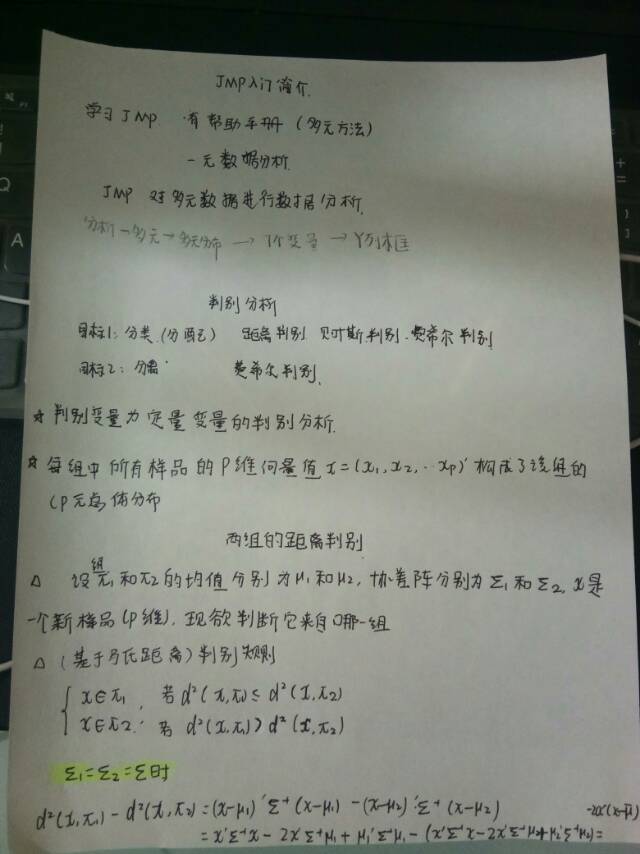 JMP入门简介.
学习JMP 有帮助手册(多元方法)
一元数据分析.
JMP 对多元数据进行数据分析.
分析→多元→多元分布→7个变量→Y列框
判别分析
目标1:分类.(分配) 距离判别 贝叶斯判别.费希尔判别
目标2:分离 费希尔判别.
☆ 判别变量为定量变量的判别分析.
☆ 每组中所有样品的P维向量值 x=(x₁,x₂,··xp)'构成了该组的
(P元总体分布
两组的距离判别
△ 设组π₁和π₂的均值分别为μ₁和μ₂,协差阵分别为Σ₁和Σ₂,x是
一个新样品(P维),现欲判断它来自哪一组
△ (基于马氏距离)判别规则
{ x∈π₁, 若d²(x,π₁)≤d²(x,π₂)
x∈π₂. 若 d²(x,π₁)>d²(x,π₂)
Σ₁=Σ₂=Σ时
d²(x,π₁)-d²(x,π₂)=(x-μ₁)'Σ⁻¹(x-μ₁)-(x-μ₂)'Σ⁻¹(x-μ₂)
=x'Σ⁻¹x-2x'Σ⁻¹μ₁+μ₁'Σ⁻¹μ₁-(x'Σ⁻¹x-2x'Σ⁻¹μ₂+μ₂'Σ⁻¹μ₂)=